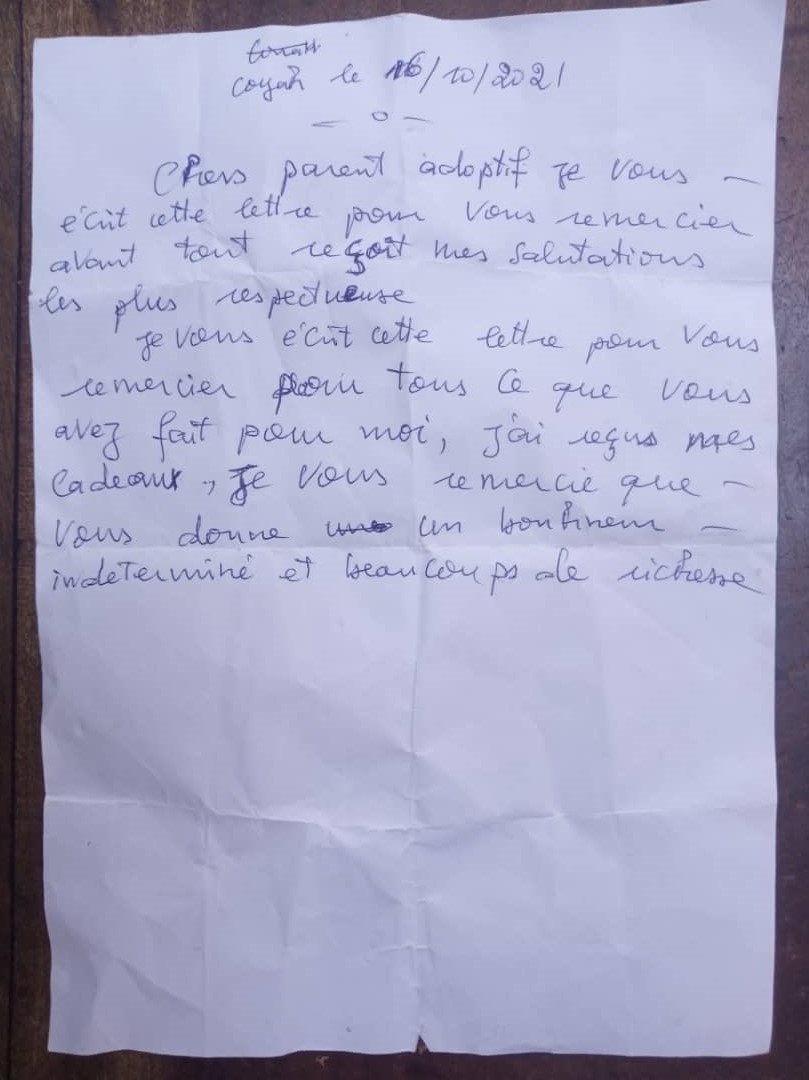 coyah le 16/10/2021
— o —
Chers parent adoptif je vous —
écrit cette lettre pour vous remercier
avant tout reçoit mes salutations
les plus respectueuse
je vous écrit cette lettre pour vous
remercier pour tous ce que vous
avez fait pour moi, j'ai reçus mes
cadeaux, je vous remercie que —
vous donne un —
indeterminé et beaucoups de richesse